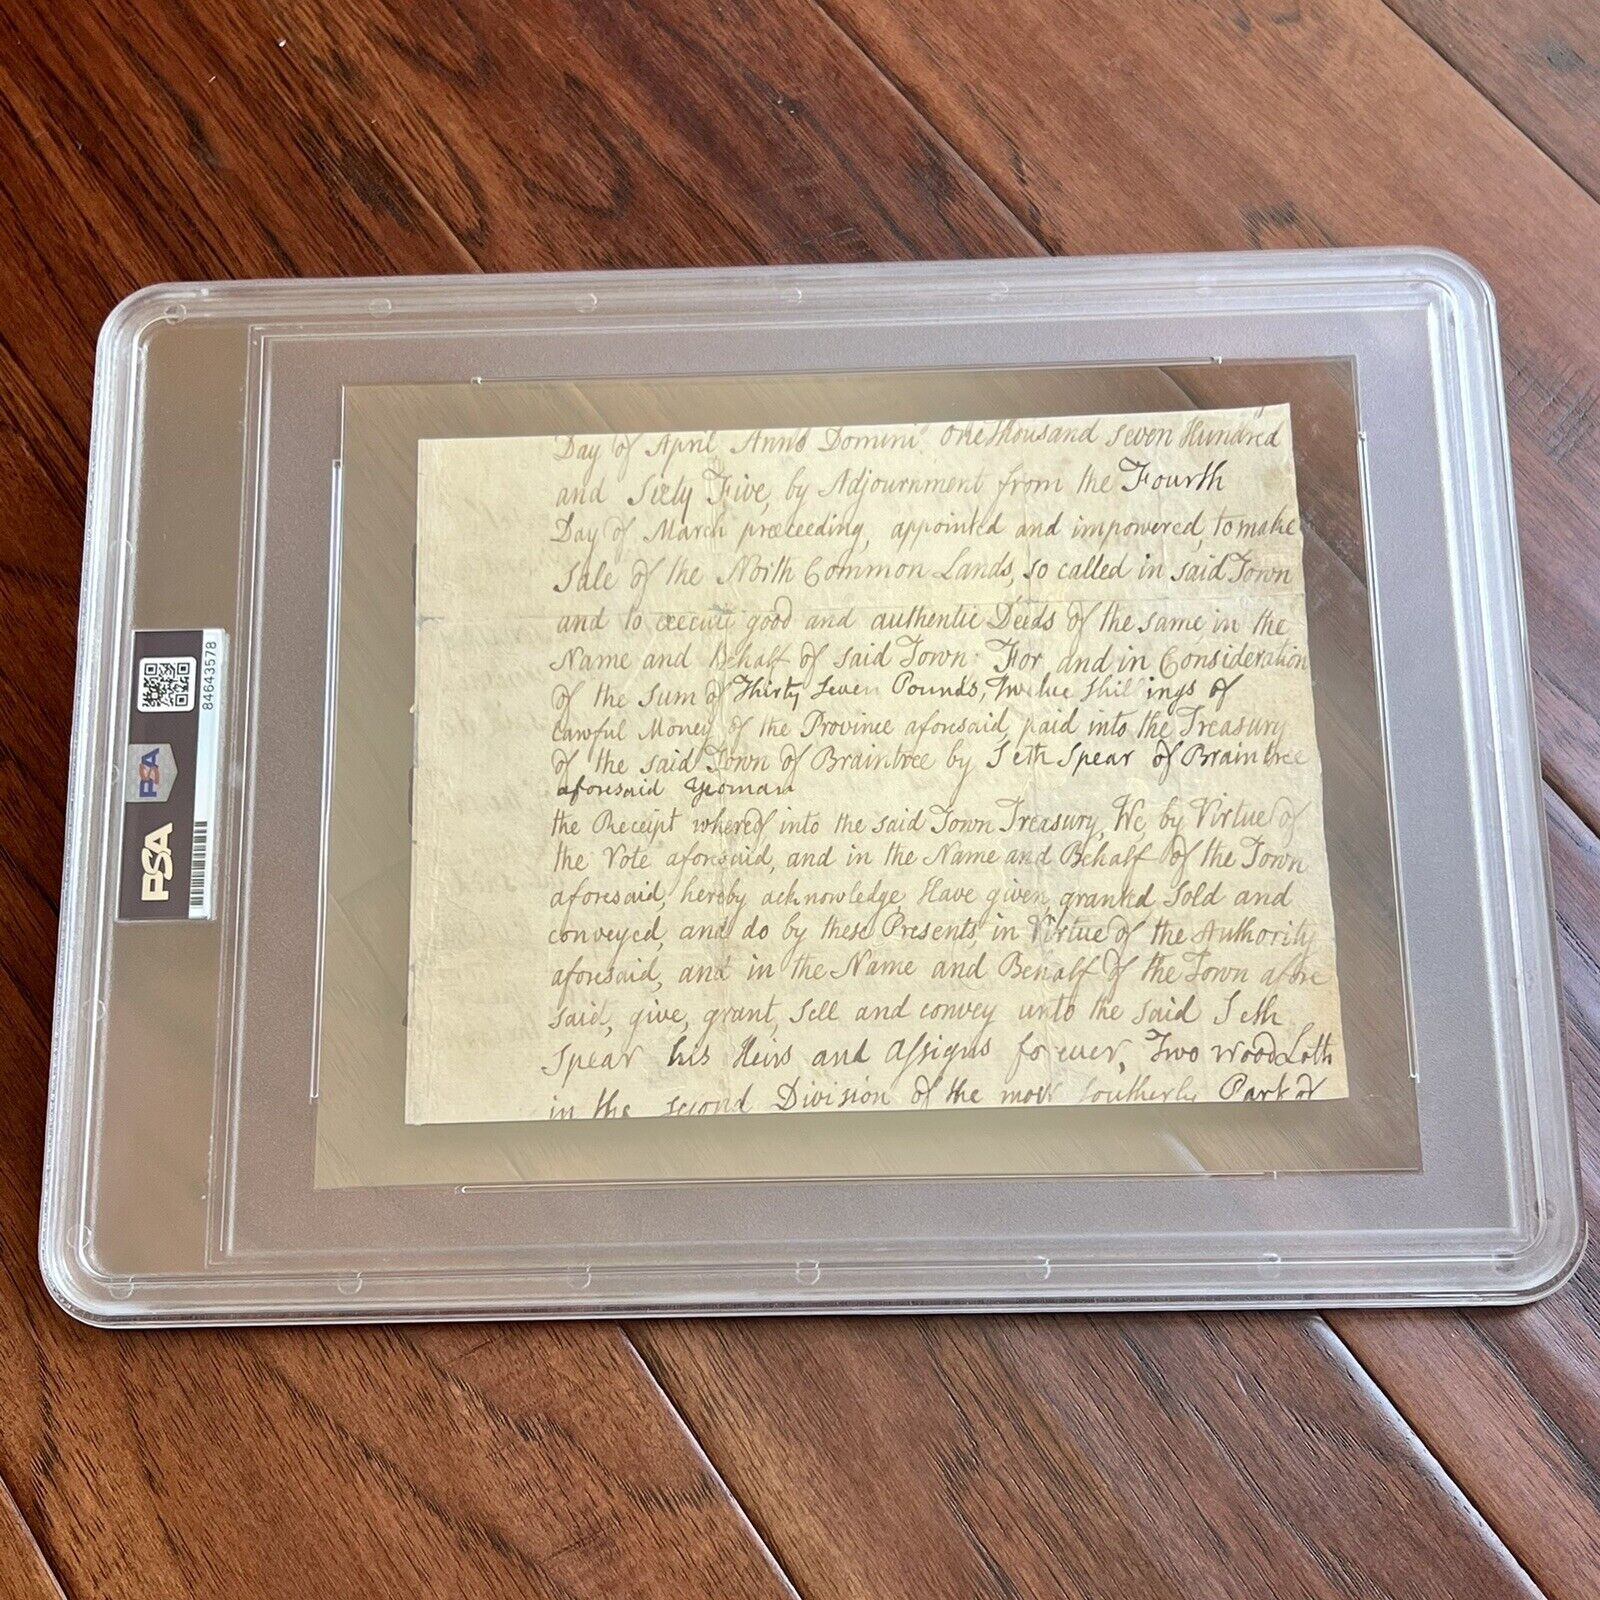 Day of April, Anno Domini one Thousand seven Hundred
and Sixty Five, by Adjournment from the Fourth
Day of March preceeding, appointed and impowered, to make
Sale of the North Common Lands, so called in said Town
and to execute good and authentic Deeds of the same in the
Name and Behalf of said Town: For, and in Consideration
of the sum of Thirty Seven Pounds, Twelve shillings of
Lawful Money of the Province aforesaid, paid into the Treasury
of the said Town of Braintree by Seth Spear of Braintree
aforesaid Yeoman
the Receipt whereof into the said Town Treasury, We, by Virtue of
the Vote aforesaid, and in the Name and Behalf of the Town
aforesaid, hereby acknowledge Have given, granted Sold and
conveyed, and do by these Presents, in Virtue of the Authority
aforesaid, and in the Name and Behalf of the Town afore
said, give, grant, Sell and convey unto the said Seth
Spear his Heirs and Assigns forever, Two Wood Lotts
in the second Division of the most Southerly Part of
84643578
PSA
PSA